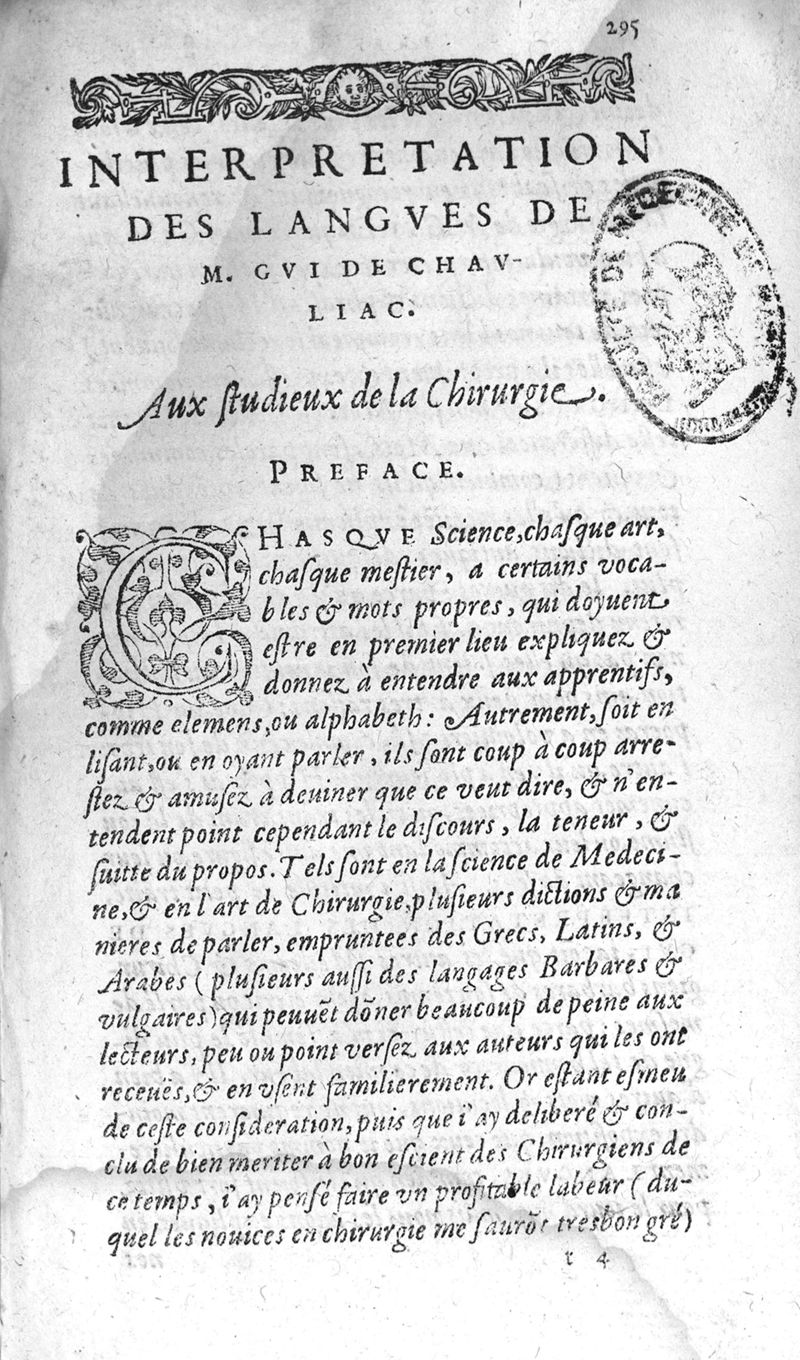 295
INTERPRETATION
DES LANGVES DE
M. GVI DE CHAV-
LIAC.
Aux ſtudieux de la Chirurgie.
PREFACE.
CHASQVE Science, chaſque art,
chaſque meſtier, a certains voca-
bles & mots propres, qui doyuent
eſtre en premier lieu expliquez &
donnez à entendre aux apprentifs,
comme elemens, ou alphabeth: Autrement, ſoit en
liſant, ou en oyant parler, ils ſont coup à coup arre-
ſtez & amuſez à deuiner que ce veut dire, & n'en-
tendent point cependant le diſcours, la teneur, &
ſuitte du propos. Tels ſont en la ſcience de Medeci-
ne, & en l'art de Chirurgie, pluſieurs dictions & ma
nieres de parler, empruntees des Grecs, Latins, &
Arabes (pluſieurs auſſi des langages Barbares &
vulgaires) qui peuuẽt dõner beaucoup de peine aux
lecteurs, peu ou point verſez aux auteurs qui les ont
receuës, & en vſent familierement. Or eſtant eſmeu
de ceſte conſideration, puis que i'ay deliberé & con-
clu de bien meriter à bon eſcient des Chirurgiens de
ce temps, i'ay penſé faire vn profitable labeur (du-
quel les nouices en chirurgie me ſaurõt tresbon gré)
t 4
DE MEDECINE DE